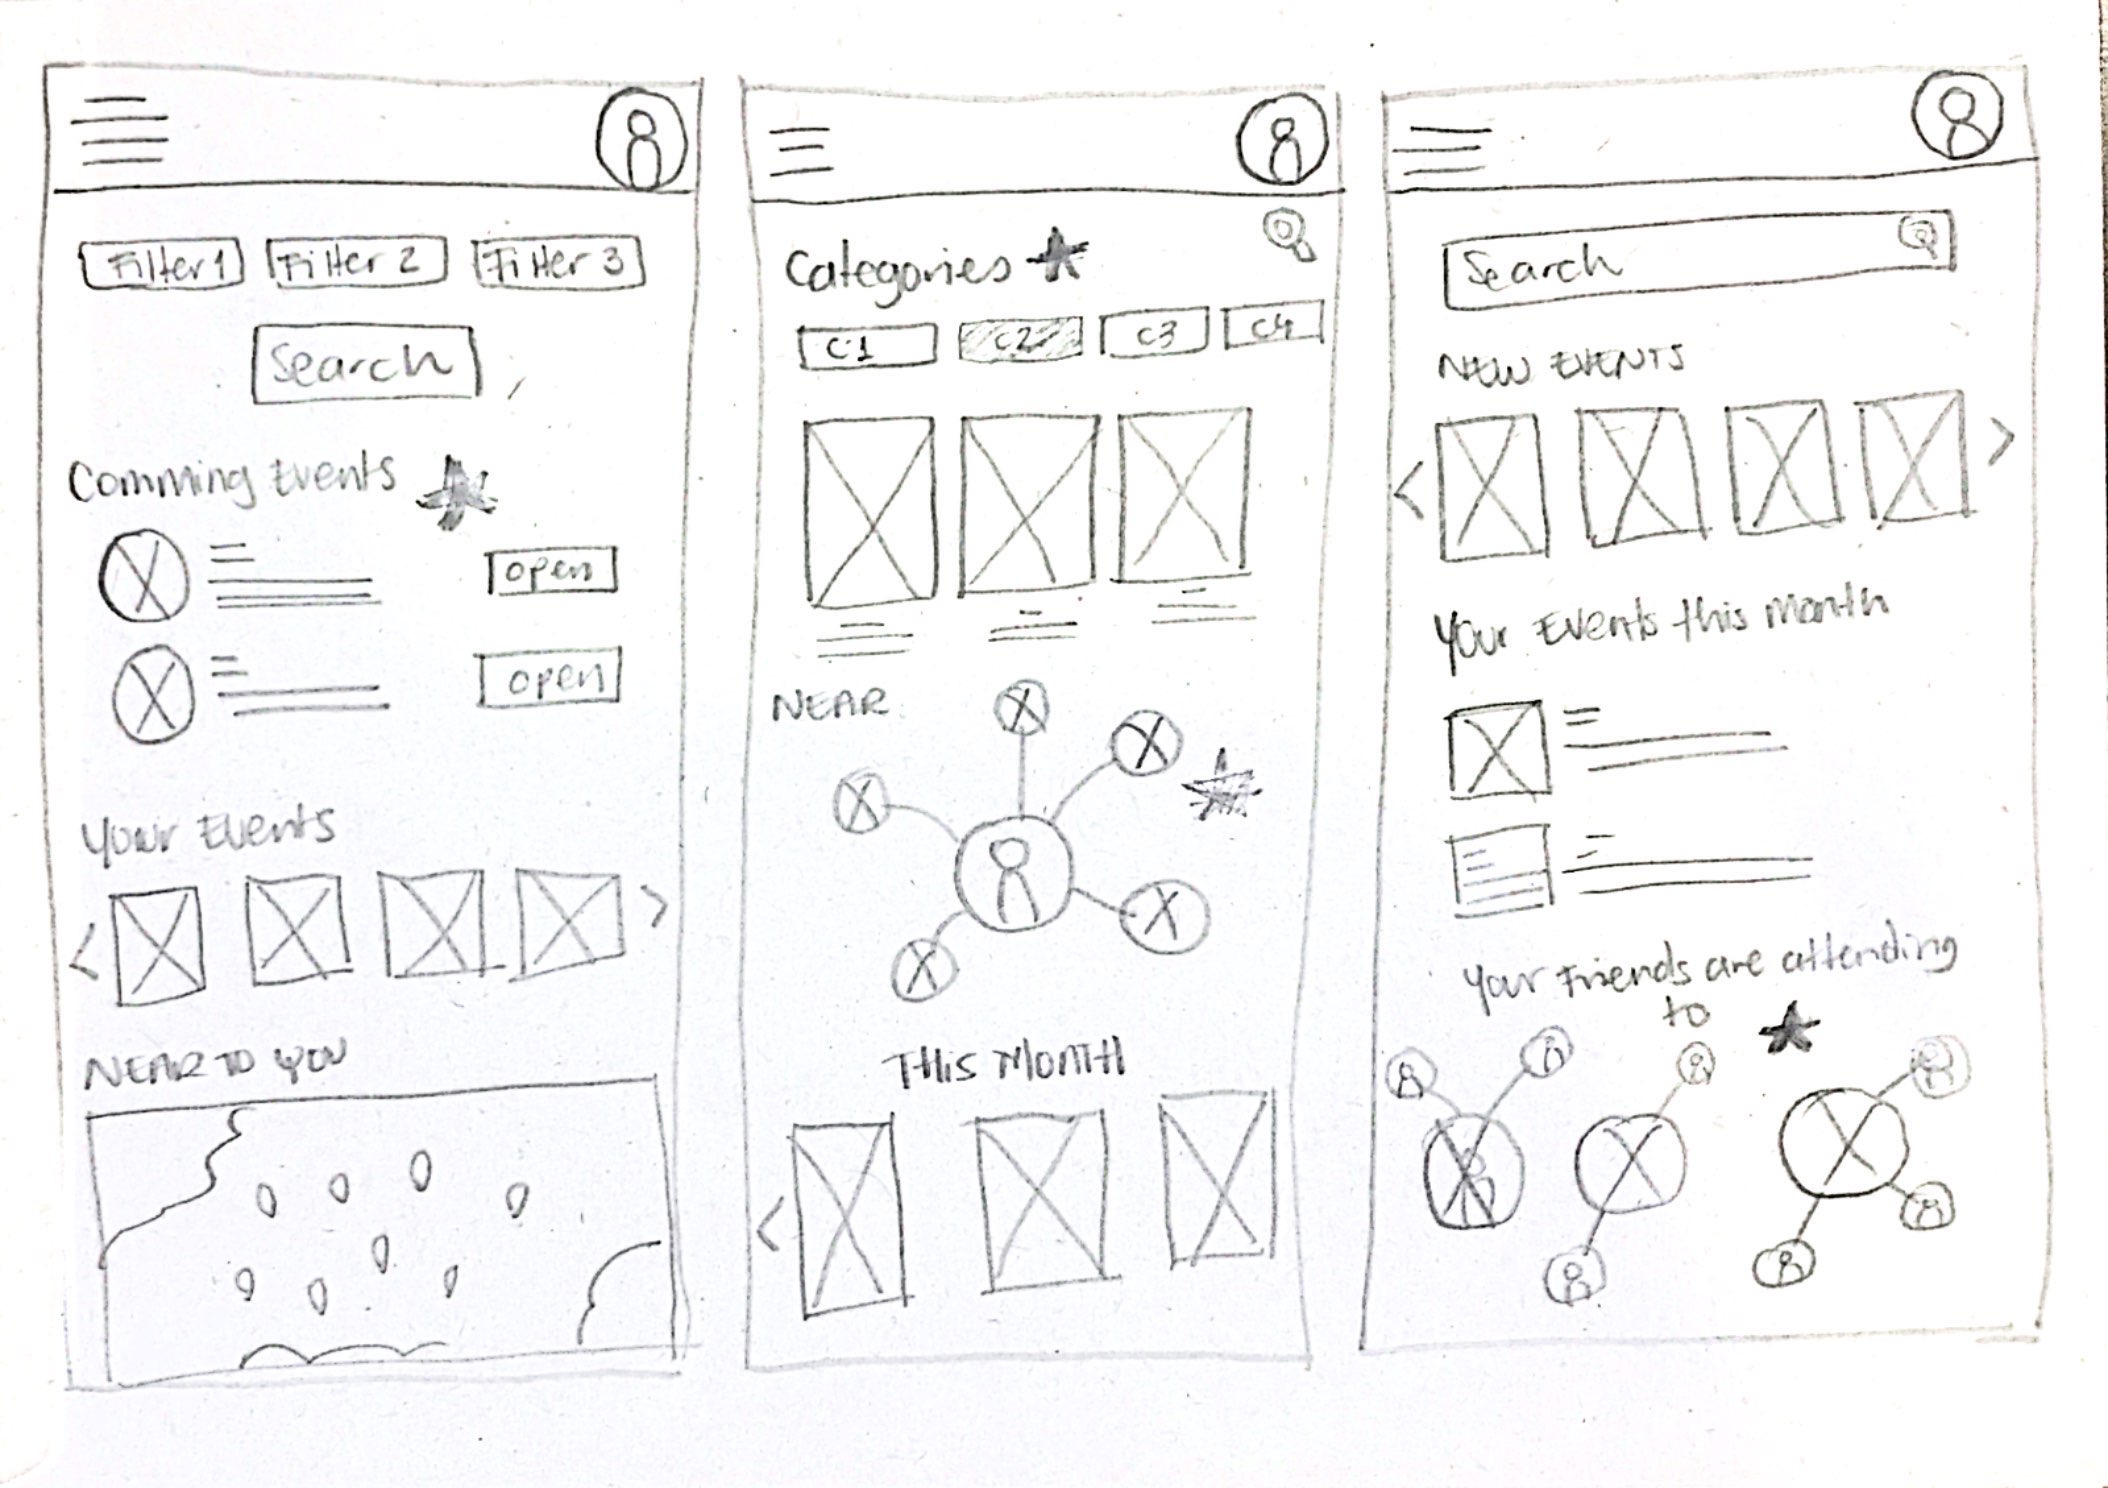 Filter 1 Filter 2 Filter 3
Search
Comming Events
open
open
Your Events
NEAR TO YOU
Categories
C1 C2 C3 C4
NEAR
THIS MONTH
Search
NEW EVENTS
Your Events this Month
Your Friends are attending
to